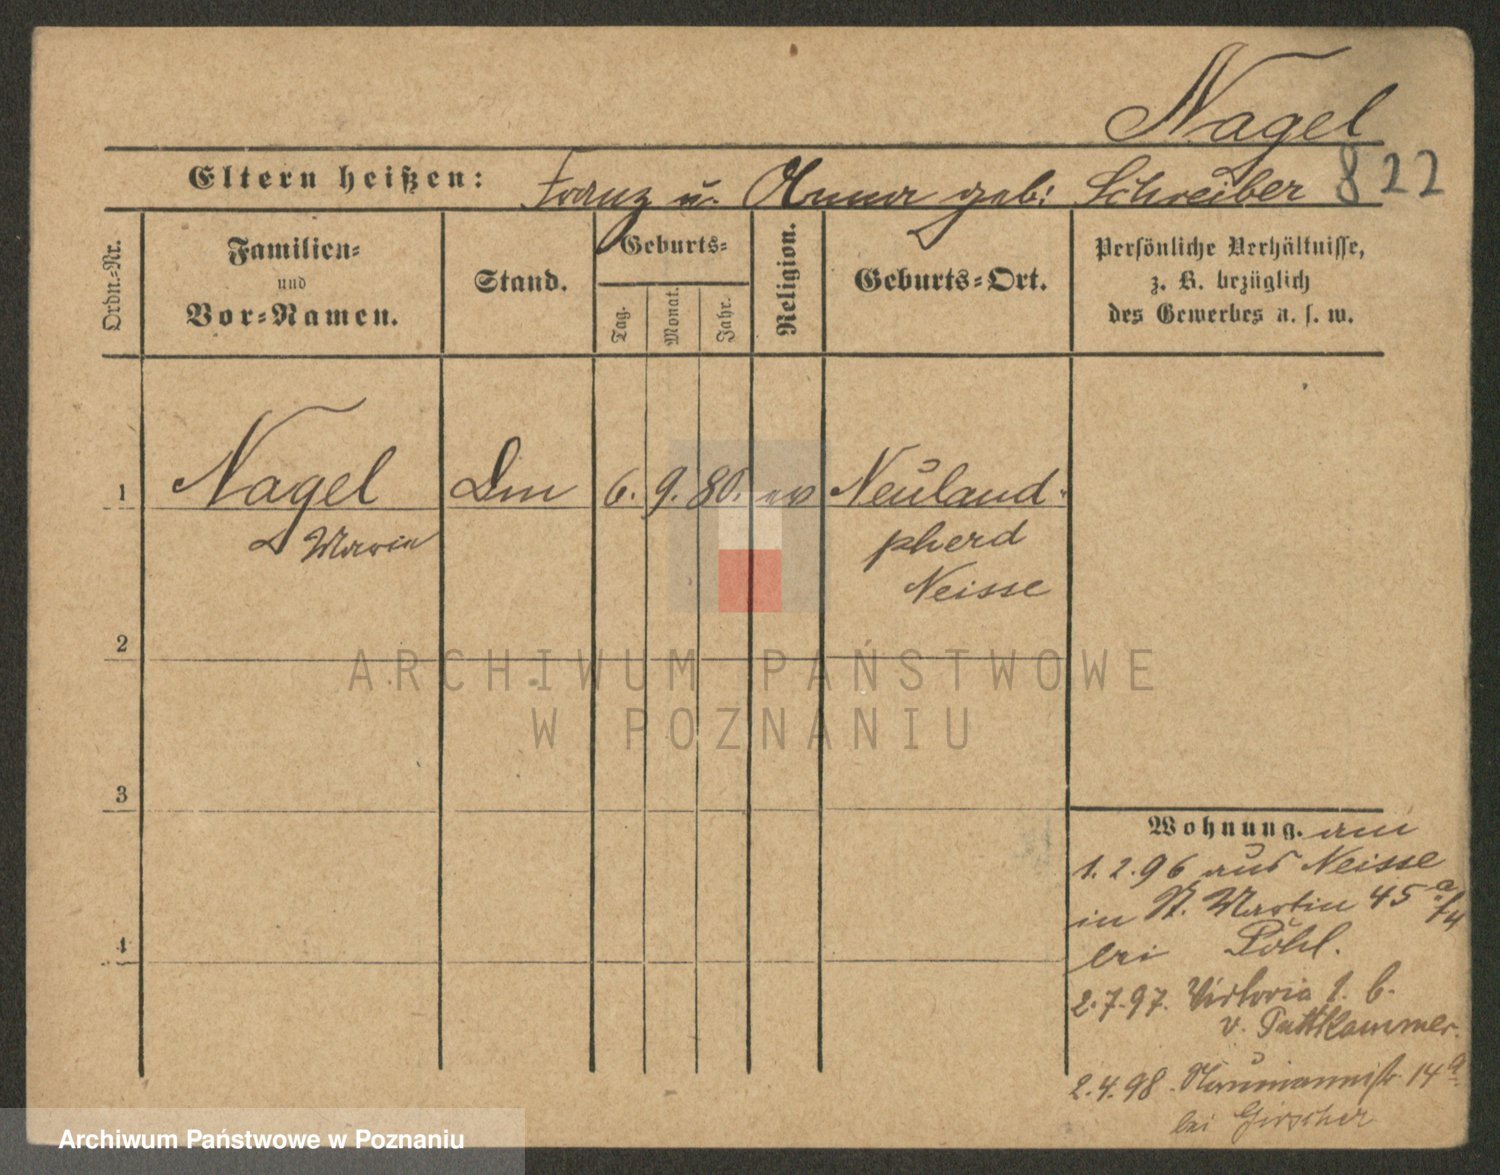 Nagel
Eltern heißen: Franz u. Anna geb: Schreiber 822
Ordn.-Nr.
Familien-
und
Vor-Namen.
Stand.
Geburts-
Tag.
Monat.
Jahr.
Religion.
Geburts-Ort.
Persönliche Verhältnisse,
z. B. bezüglich
des Gewerbes u. s. w.
1 Nagel Din 6. 9. 80. ev Neuland
Maria pherd
Neisse
2
3
4
Wohnung. am
1.2.96 aus Neisse
in St. Martin 45
bei Pohl.
2.7.97. Viktoria 1. b.
v. Puttkammer.
2.4.98. Naumannstr 14a
bei Girscher
ARCHIWUM PAŃSTWOWE
W POZNANIU
Archiwum Państwowe w Poznaniu